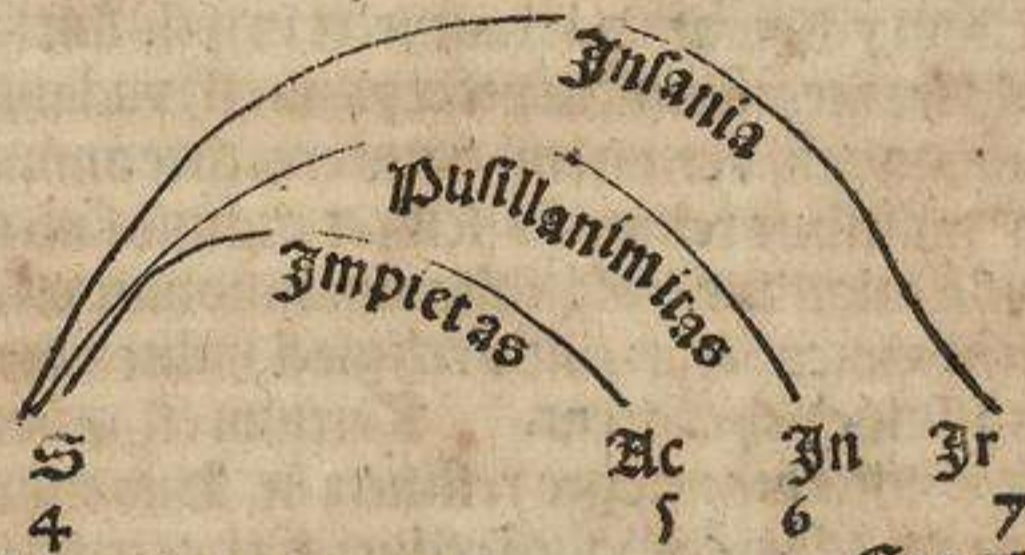 Inſania
Puſillanimitas
Impietas
S Ac In Ir
4 5 6 7